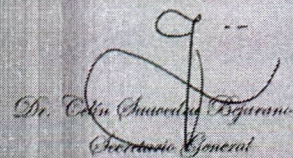 Dr. Celín Saavedra Bejarano
Secretario General